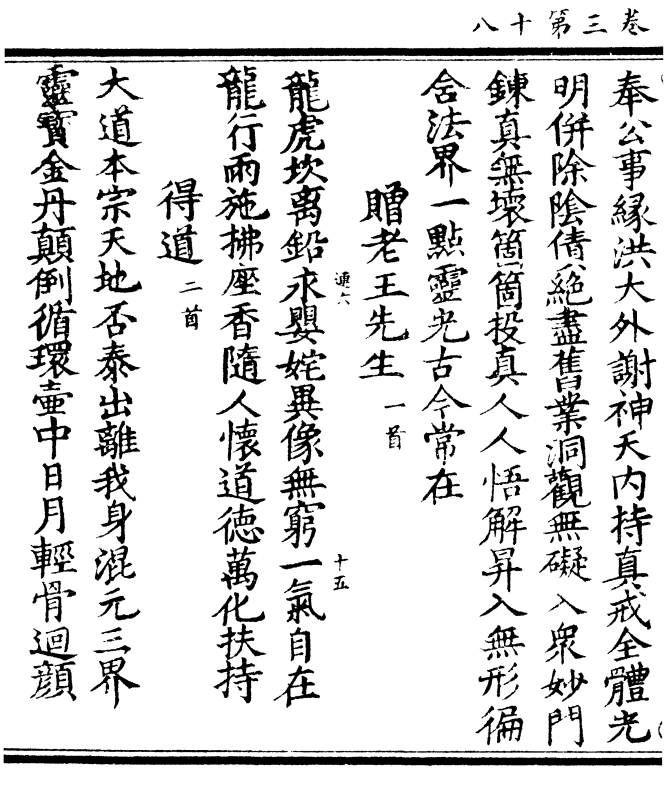 卷三第十八
奉公事緣洪大外謝神天内持真戒全體光
明併除陰債絕盡舊業洞觀無礙入衆妙門
鍊真無壞箇箇投真人人悟解昇入無形徧
舍法界一點靈光古今常在
贈老王先生一首
連六
十五
龍虎坎离鉛汞嬰姹異像無窮一氣自在
龍行雨施拂座香隨人懷道德萬化扶持
得道二首
大道本宗天地否泰出離我身混元三界
靈寶金丹顛倒循環壷中日月輕骨迴顔